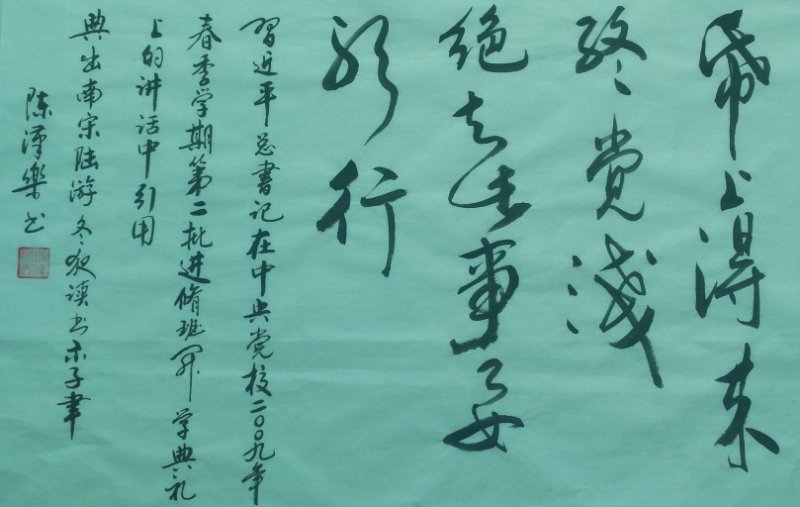 帋上得来
终觉浅
绝知此事要
躬行
習近平总書记在中央党校二〇〇九年
春季学期第二批进脩班开学典礼
上的讲话中引用
典出南宋陆游冬夜读书示子聿
陈泽樂书